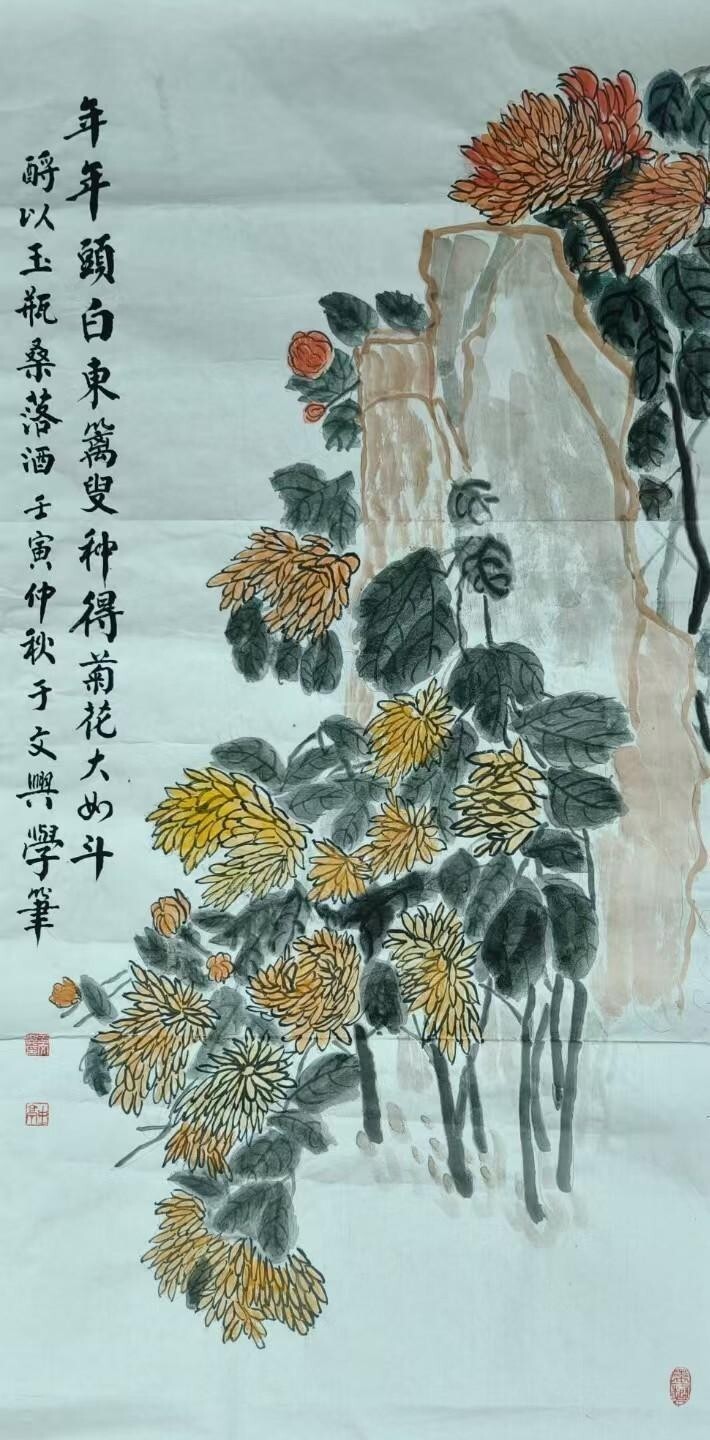 年年頭白東籬叟种得菊花大如斗
酹以玉瓶桑落酒壬寅仲秋于文興學筆